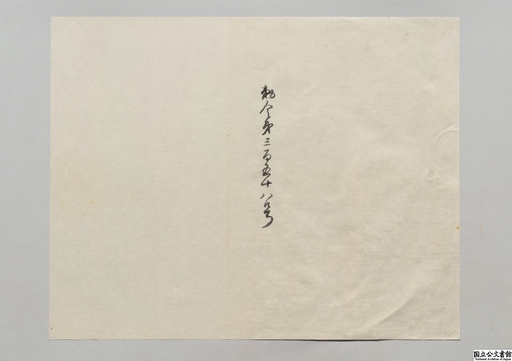 勅令第三百五十八号
国立公文書館
National Archives of Japan